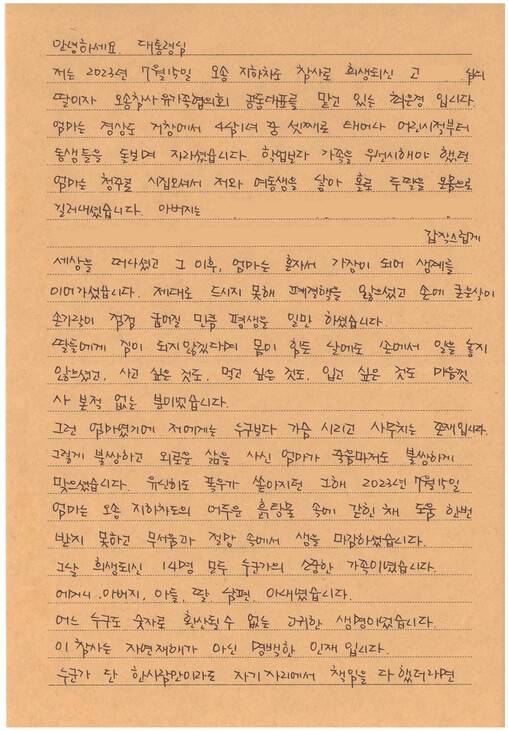 안녕하세요. 대통령님
저는 2023년 7월15일 오송 지하차도 참사로 희생되신 고 님의
딸이자 오송참사 유가족협의회 공동대표를 맡고 있는 최은경 입니다.
엄마는 경상도 거창에서 4남1녀 중 셋째로 태어나 어린시절부터
동생들을 돌보며 자라셨습니다. 학업보다 가족을 우선시해야 했던
엄마는 청주로 시집오셔서 저와 여동생을 낳아 홀로 두딸을 온몸으로
길러내셨습니다. 아버지는
갑작스럽게
세상을 떠나셨고 그 이후, 엄마는 혼자서 가장이 되어 생계를
이어가셨습니다. 제대로 드시지 못해 폐결핵을 앓으셨고 손에 굳은살이
손가락이 점점 굽어질 만큼 평생을 일만 하셨습니다.
딸들에게 짐이 되지않겠다며 몸이 힘든 날에도 손에서 일을 놓지
않으셨고, 사고 싶은 것도, 먹고 싶은 것도, 입고 싶은 것도 마음껏
사 본적 없는 분이었습니다.
그런 엄마였기에 저에게는 누구보다 가슴 시리고 사무치는 존재입니다.
그렇게 불쌍하고 외로운 삶을 사신 엄마가 죽음마저도 불쌍하게
맞으셨습니다. 유난히도 폭우가 쏟아지던 그해 2023년 7월15일
엄마는 오송 지하차도의 어두운 흙탕물 속에 갇힌채 도움 한번
받지 못하고 무서움과 절망 속에서 생을 마감하셨습니다.
그날 희생되신 14명 모두 누군가의 소중한 가족이였습니다.
어머니, 아버지, 아들, 딸 남편, 아내였습니다.
어느 누구도 숫자로 환산될수 없는 고귀한 생명이었습니다.
이 참사는 자연재해가 아닌 명백한 인재 입니다.
누군가 단 한사람만이라도 자기 자리에서 책임을 다 했더라면